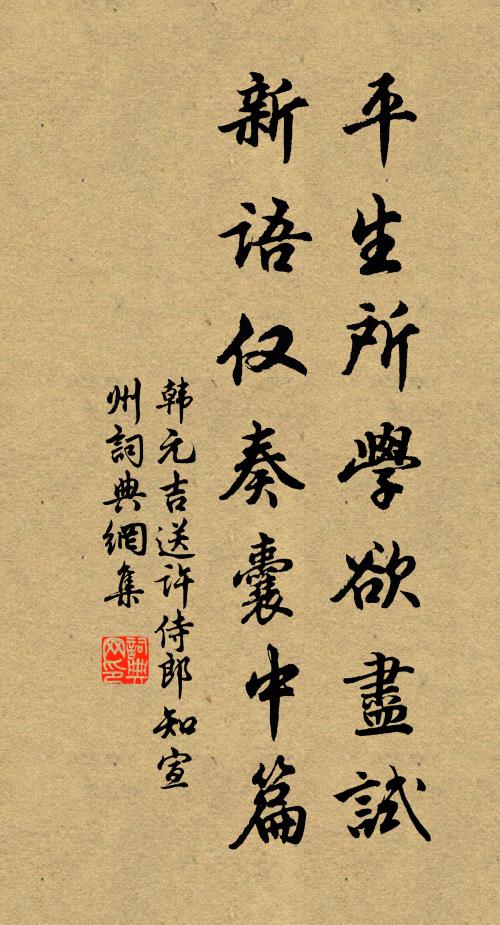 平生所學欲盡試
新语仅奏囊中篇
韩元吉送许侍郎知宣
州詞典網集
詞典
网印